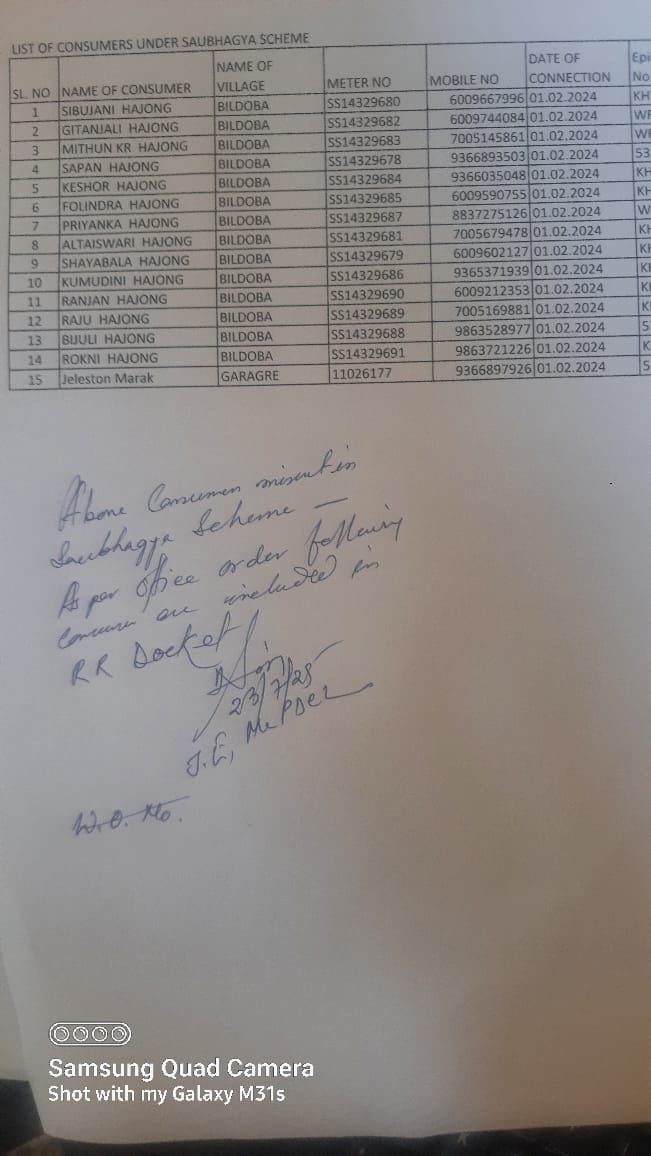 LIST OF CONSUMERS UNDER SAUBHAGYA SCHEME
SL. NO NAME OF CONSUMER NAME OF VILLAGE METER NO MOBILE NO DATE OF CONNECTION Epi No
1 SIBUJANI HAJONG BILDOBA SS14329680 6009667996 01.02.2024 KH
2 GITANJALI HAJONG BILDOBA SS14329682 6009744084 01.02.2024
3 MITHUN KR HAJONG BILDOBA SS14329683 7005145861 01.02.2024
4 SAPAN HAJONG BILDOBA SS14329678 9366893503 01.02.2024 53
5 KESHOR HAJONG BILDOBA SS14329684 9366035048 01.02.2024 KH
6 FOLINDRA HAJONG BILDOBA SS14329685 6009590755 01.02.2024 KH
7 PRIYANKA HAJONG BILDOBA SS14329687 8837275126 01.02.2024 W
8 ALTAISWARI HAJONG BILDOBA SS14329681 7005679478 01.02.2024 KH
9 SHAYABALA HAJONG BILDOBA SS14329679 6009602127 01.02.2024 KH
10 KUMUDINI HAJONG BILDOBA SS14329686 9365371939 01.02.2024
11 RANJAN HAJONG BILDOBA SS14329690 6009212353 01.02.2024
12 RAJU HAJONG BILDOBA SS14329689 7005169881 01.02.2024
13 BIJULI HAJONG BILDOBA SS14329688 9863528977 01.02.2024 5
14 ROKNI HAJONG BILDOBA SS14329691 9863721226 01.02.2024 K
15 Jeleston Marak GARAGRE 11026177 9366897926 01.02.2024 5
Above Consumer in
Saubhagya Scheme —
As per office order following
Consumer are included in
RR Docket
23/7/25
J.E, MePDCL
W.O. No.
Samsung Quad Camera
Shot with my Galaxy M31s